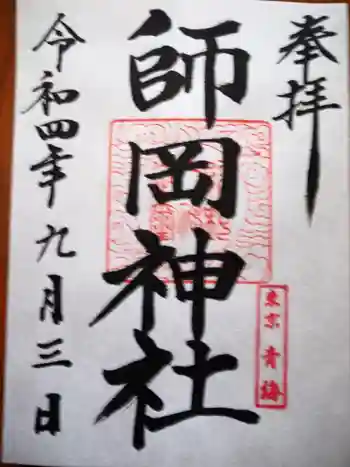 奉拝
師岡神社
東京 青梅
令和四年九月三日